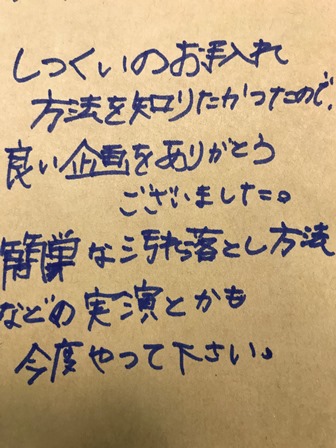 しっくいのお手入れ
方法を知りたかったので
良い企画をありがとう
ございました。
簡単な汚れ落とし方法
などの実演とかも
今度やって下さい。